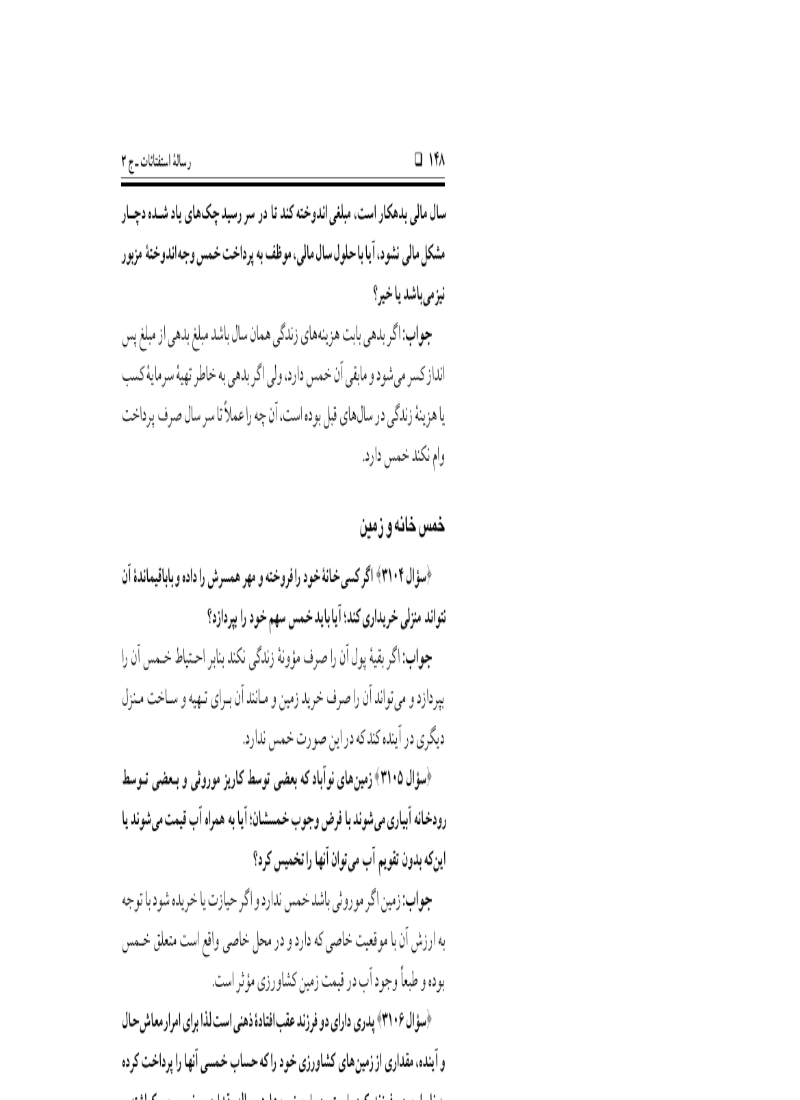 ۱۴۸ ❑ رسالهٔ استفتائات ـ ج ۳
سال مالی بدهکار است، مبلغی اندوخته کند تا در سر رسید چک‌های یاد شـده دچـار
مشکل مالی نشود، آیا با حلول سال مالی، موظف به پرداخت خمس وجه اندوختهٔ مزبور
نیز می‌باشد یا خیر؟
جواب: اگر بدهی بابت هزینه‌های زندگی همان سال باشد مبلغ بدهی از مبلغ پس
انداز کسر می‌شود و مابقی آن خمس دارد، ولی اگر بدهی به خاطر تهیهٔ سرمایهٔ کسب
یا هزینهٔ زندگی در سال‌های قبل بوده است، آن چه را عملاً تا سر سال صرف پرداخت
وام نکند خمس دارد.
خمس خانه و زمین
﴿سؤال ۳۱۰۴﴾ اگر کسی خانهٔ خود را فروخته و مهر همسرش را داده و با باقیماندهٔ آن
نتواند منزلی خریداری کند؛ آیا باید خمس سهم خود را بپردازد؟
جواب: اگر بقیهٔ پول آن را صرف مؤونهٔ زندگی نکند بنابر احـتیاط خـمس آن را
بپردازد و می‌تواند آن را صرف خرید زمین و مـانند آن بـرای تـهیه و سـاخت مـنزل
دیگری در آینده کند که در این صورت خمس ندارد.
﴿سؤال ۳۱۰۵﴾ زمین‌های نوآباد که بعضی توسط کاریز موروثی و بـعضی تـوسط
رودخانه آبیاری می‌شوند با فرض وجوب خمسشان؛ آیا به همراه آب قیمت می‌شوند یا
این‌که بدون تقویم آب می‌توان آنها را تخمیس کرد؟
جواب: زمین اگر موروثی باشد خمس ندارد و اگر حیازت یا خریده شود با توجه
به ارزش آن با موقعیت خاصی که دارد و در محل خاصی واقع است متعلق خـمس
بوده و طبعاً وجود آب در قیمت زمین کشاورزی مؤثر است.
﴿سؤال ۳۱۰۶﴾ پدری دارای دو فرزند عقب افتادهٔ ذهنی است لذا برای امرار معاش حال
و آینده، مقداری از زمین‌های کشاورزی خود را که حساب خمسی آنها را پرداخت کرده